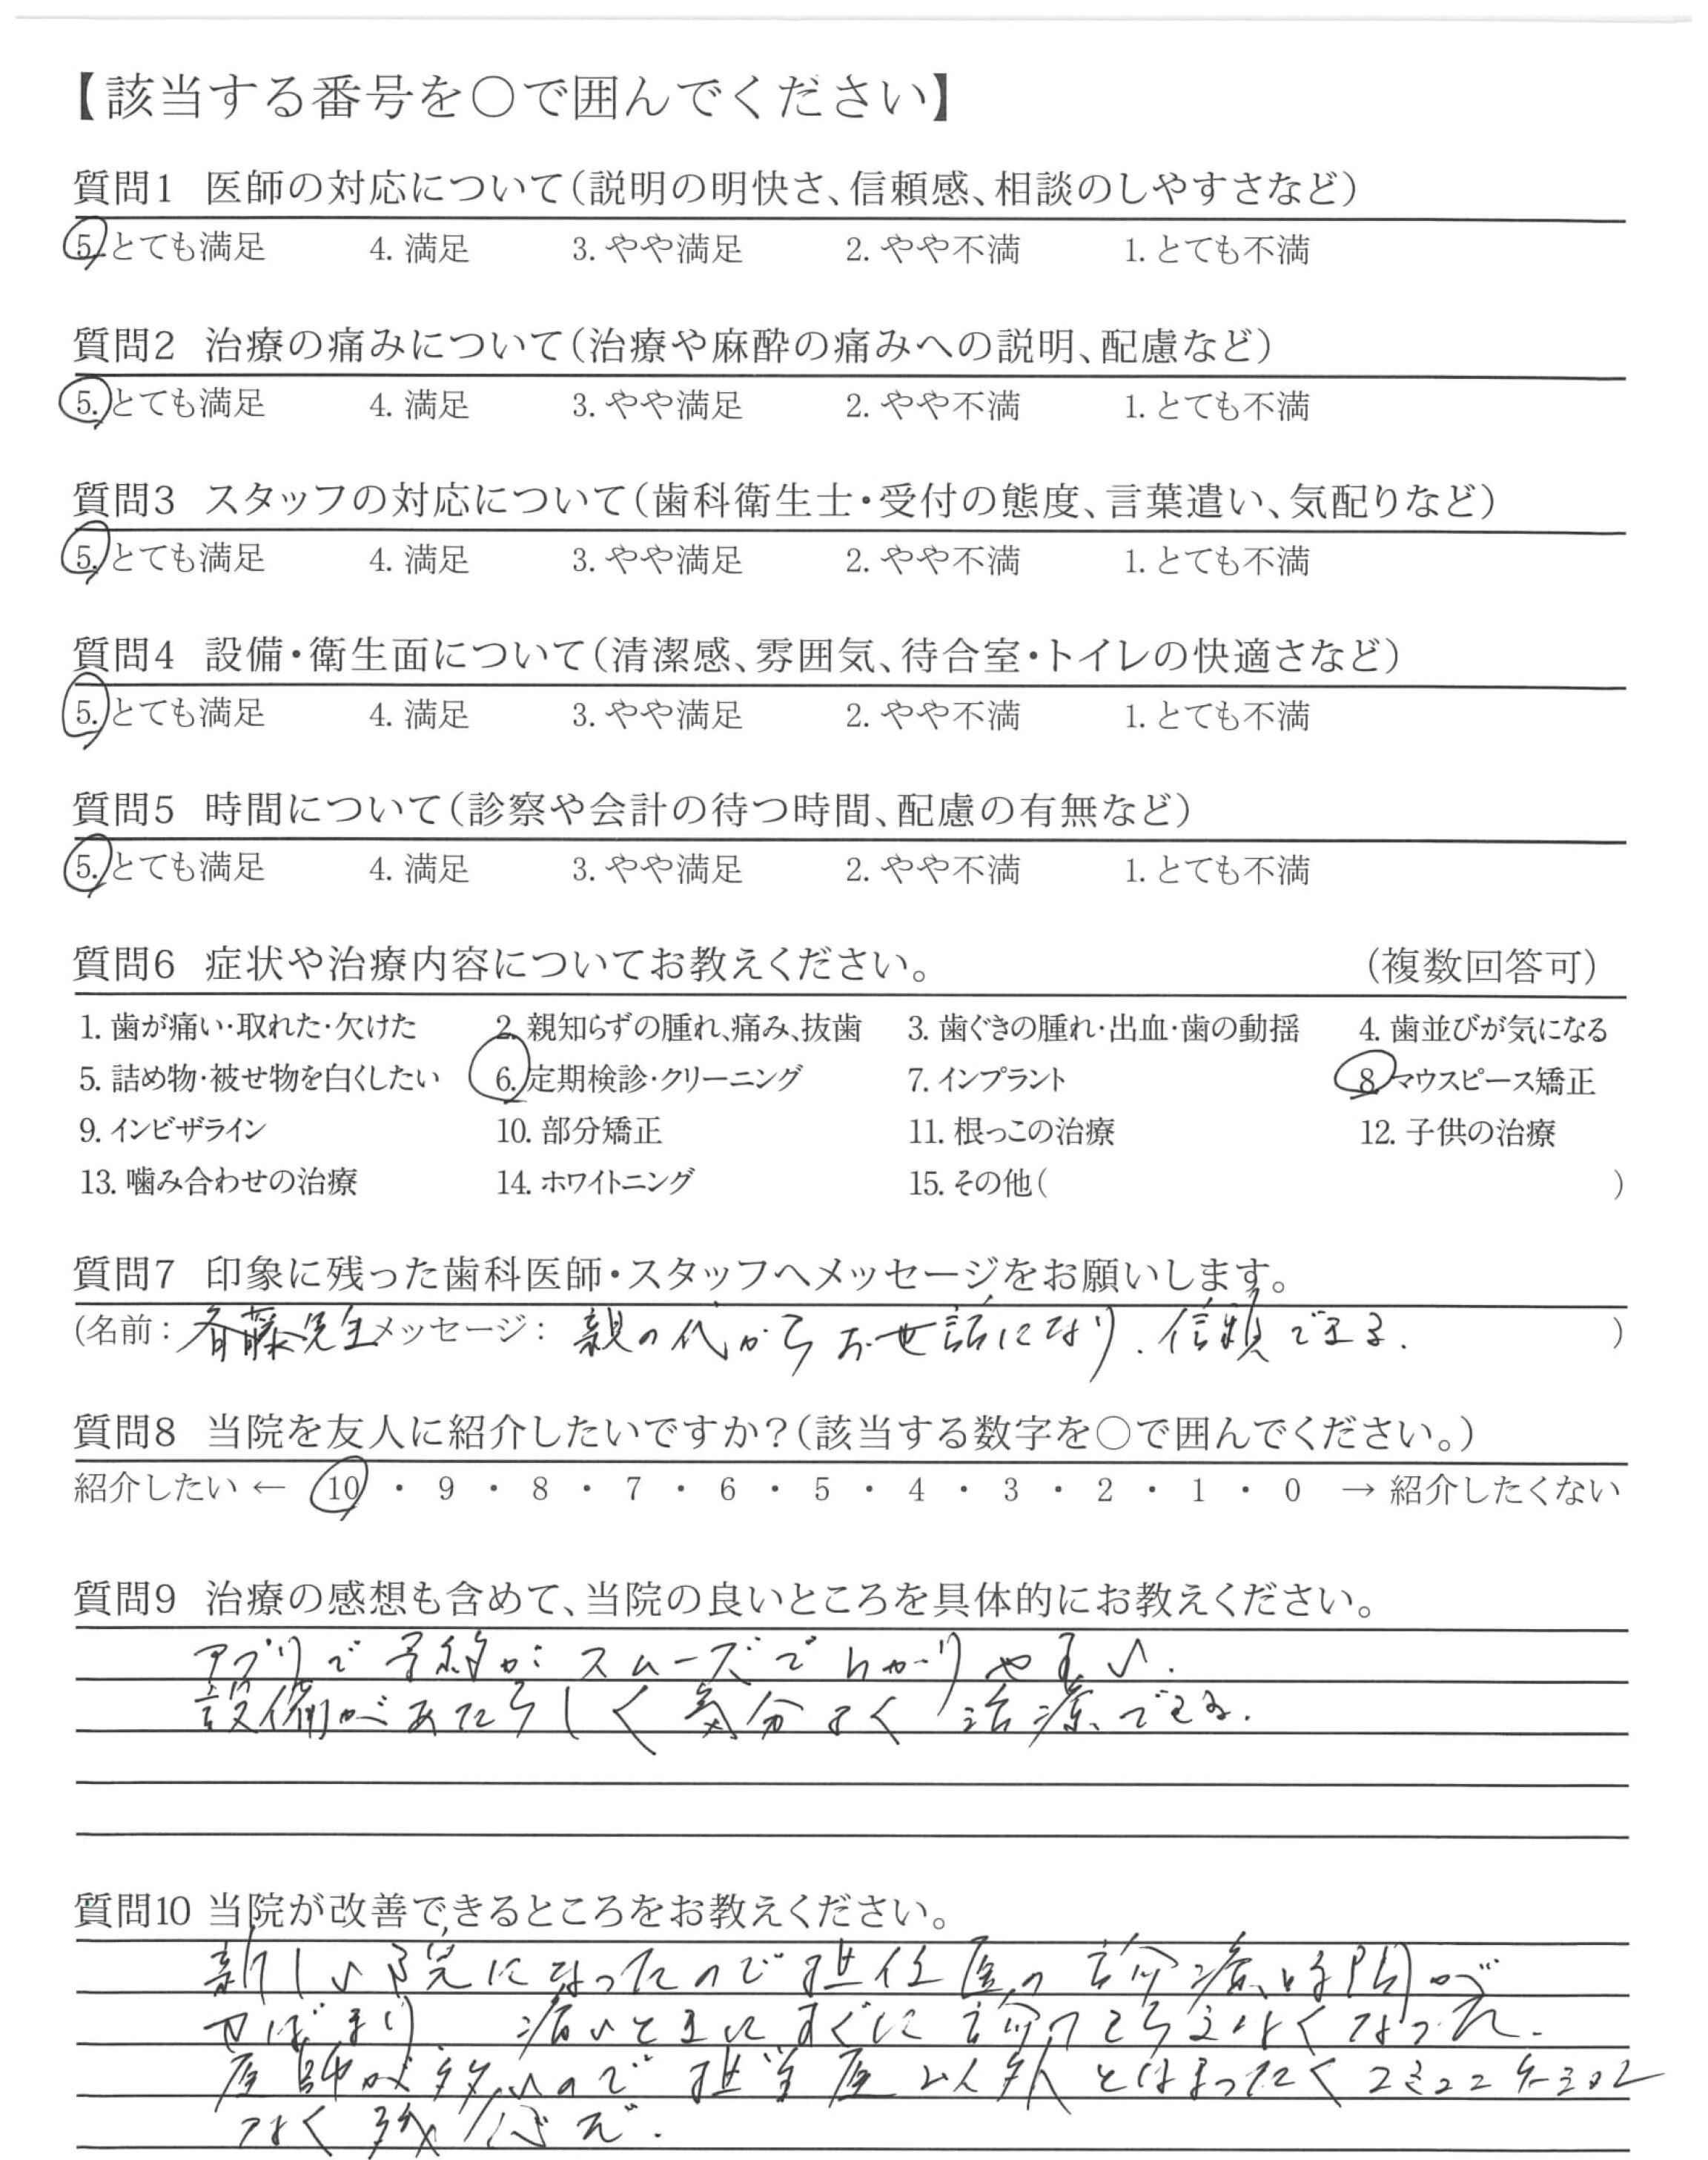 【該当する番号を〇で囲んでください】
質問1 医師の対応について（説明の明快さ、信頼感、相談のしやすさなど）
5. とても満足 4. 満足 3. やや満足 2. やや不満 1. とても不満
質問2 治療の痛みについて（治療や麻酔の痛みへの説明、配慮など）
5. とても満足 4. 満足 3. やや満足 2. やや不満 1. とても不満
質問3 スタッフの対応について（歯科衛生士・受付の態度、言葉遣い、気配りなど）
5. とても満足 4. 満足 3. やや満足 2. やや不満 1. とても不満
質問4 設備・衛生面について（清潔感、雰囲気、待合室・トイレの快適さなど）
5. とても満足 4. 満足 3. やや満足 2. やや不満 1. とても不満
質問5 時間について（診察や会計の待つ時間、配慮の有無など）
5. とても満足 4. 満足 3. やや満足 2. やや不満 1. とても不満
質問6 症状や治療内容についてお教えください。 （複数回答可）
1. 歯が痛い・取れた・欠けた 2. 親知らずの腫れ、痛み、抜歯 3. 歯ぐきの腫れ・出血・歯の動揺 4. 歯並びが気になる
5. 詰め物・被せ物を白くしたい 6. 定期検診・クリーニング 7. インプラント 8. マウスピース矯正
9. インビザライン 10. 部分矯正 11. 根っこの治療 12. 子供の治療
13. 噛み合わせの治療 14. ホワイトニング 15. その他（ ）
質問7 印象に残った歯科医師・スタッフへメッセージをお願いします。
（名前： 斉藤先生 メッセージ： 親の代からお世話になり、信頼できる。 ）
質問8 当院を友人に紹介したいですか？（該当する数字を〇で囲んでください。）
紹介したい ← 10 ・ 9 ・ 8 ・ 7 ・ 6 ・ 5 ・ 4 ・ 3 ・ 2 ・ 1 ・ 0 → 紹介したくない
質問9 治療の感想も含めて、当院の良いところを具体的にお教えください。
アプリで予約がスムーズでわかりやすい。
設備があたらしく気分よく治療できる。
質問10 当院が改善できるところをお教えください。
新しい院になったので担任医の診療時間が
せばまり、痛いときにすぐに診てもらえなくなった。
医師が多いので担当医以外とはまったくコミュニケーション
なく残念だ。